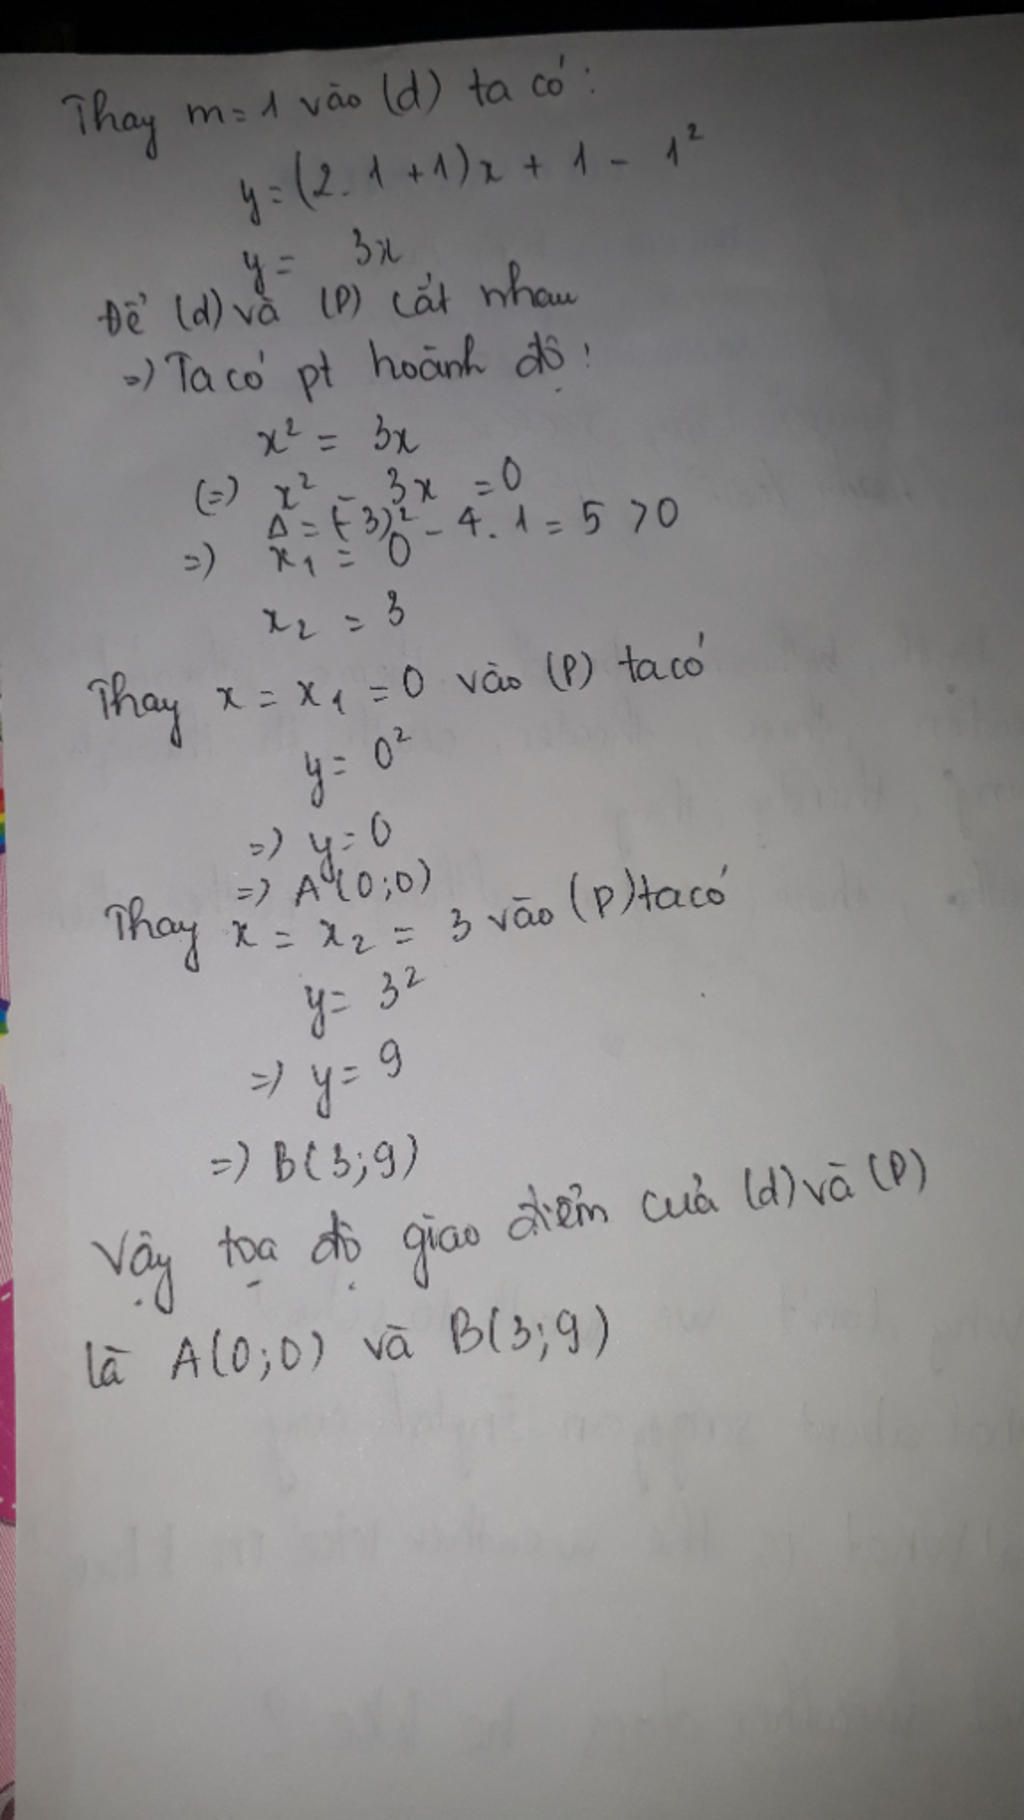 Thay m = 1 vào (d) ta có:
y = (2.1 + 1)x + 1 - 1²
y = 3x
Để (d) và (P) cắt nhau
=) Ta có pt hoành độ:
x² = 3x
(=) x² - 3x = 0
Δ = (-3)² - 4.1 = 5 > 0
=) x₁ = 0
x₂ = 3
Thay x = x₁ = 0 vào (P) ta có
y = 0²
=) y = 0
=) A(0;0)
Thay x = x₂ = 3 vào (P) ta có
y = 3²
=) y = 9
=) B(3;9)
Vậy tọa độ giao điểm của (d) và (P)
là A(0;0) và B(3;9)